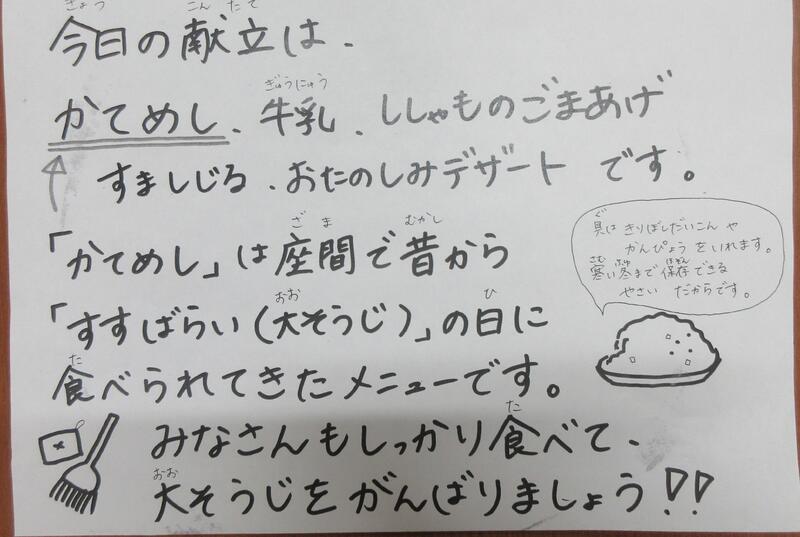 きょう こんだて
今日の献立は、
ぎゅうにゅう
かてめし、牛乳、ししゃものごまあげ
すましじる、おたのしみデザート です。
ざま むかし
「かてめし」は座間で昔から
おお ひ
「すすばらい(大そうじ)」の日に
た
食べられてきたメニューです。
ぐ
具は きりぼしだいこん や
かんぴょう をいれます。
さむ ふゆ ほぞん
寒い冬まで保存できる
やさい だからです。
た
みなさんもしっかり食べて、
おお
大そうじをがんばりましょう!!